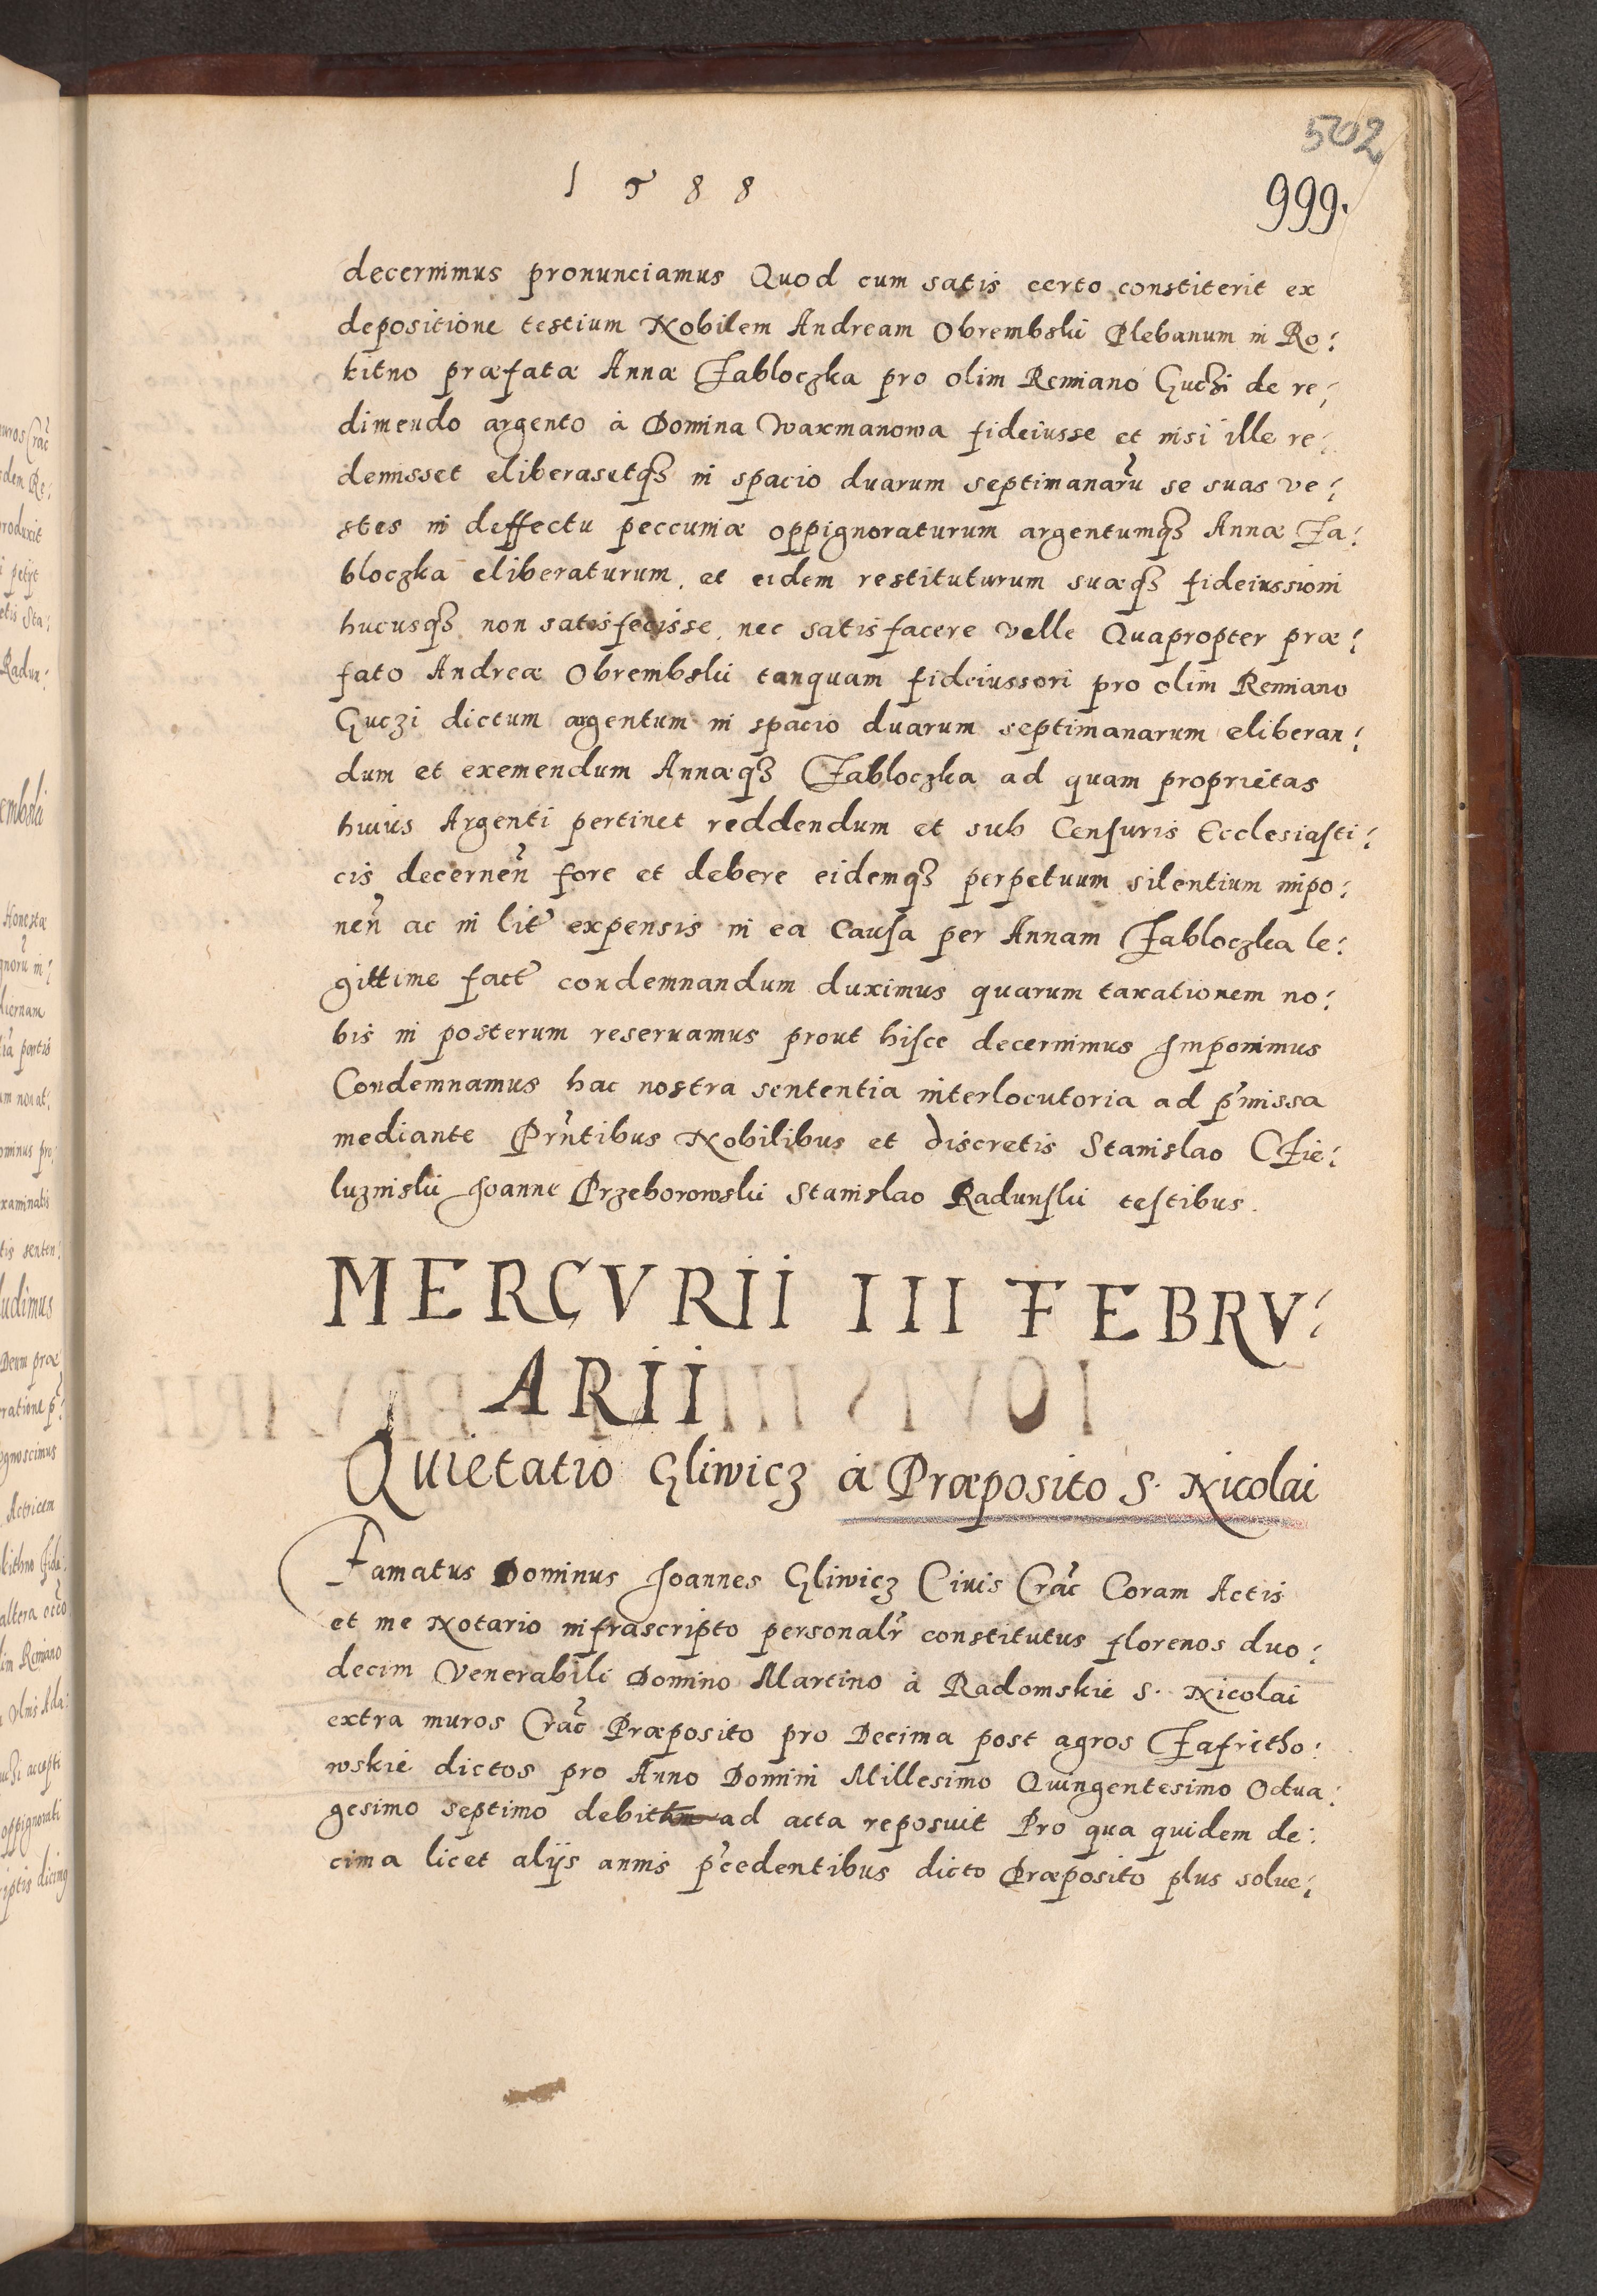 502
1588
999.
decernimus pronunciamus Quod cum satis certo constiterit ex
depositione testium Nobilem Andream Obrembskii Plebanum in Ro:
kitno præfatæ Annæ Jabloczka pro olim Remiano Guczi de re:
dimendo argento à Domina Waxmanowa fideiusse et nisi ille re:
demisset eliberasetq3 in spacio duarum septimanarũ se suas ve:
stes in deffectu peccuniæ oppignoraturum argentumq3 Annæ Ja:
bloczka eliberaturum, et eidem restituturum suæq3 fideiussioni
hucusq3 non satisfecisse, nec satisfacere velle Quapropter præ:
fato Andreæ Obrembskii tanquam fideiussori pro olim Remiano
Guczi dictum argentum in spacio duarum septimanarum eliberan:
dum et exemendum Annæq3 Jabloczka ad quam proprietas
huius Argenti pertinet reddendum et sub Censuris Ecclesiasti:
cis decerneñ fore et debere eidemq3 perpetuum silentium impo:
neñ ac in lit̃ expensis in ea Causa per Annam Jabloczka le:
gittime fact̃ condemnandum duximus quarum taxationem no:
bis in posterum reseruamus prout hisce decernimus Imponimus
Condemnamus hac nostra sententia interlocutoria ad p̃missa
mediante Prñtibus Nobilibus et discretis Stanislao Jie:
luzniskii Joanne Przeborowskii Stanislao Radunskii testibus.
MERCVRII III FEBRV:
ARII
Quietatio Gliwicz à Præposito S. Nicolai
Famatus Dominus Joannes Gliwicz Ciuis Crac̃ Coram Actis
et me Notario infrascripto personalr̃ constitutus florenos duo:
decim Venerabili Domino Martino à Radomskie S. Nicolai
extra muros Crac̃ Præposito pro Decima post agros Jafritho:
wskie dictos pro Anno Domini Millesimo Quingentesimo Octua:
gesimo septimo debit ad acta reposuit Pro qua quidem de:
cima licet alijs annis p̃cedentibus dicto Præposito plus solue: